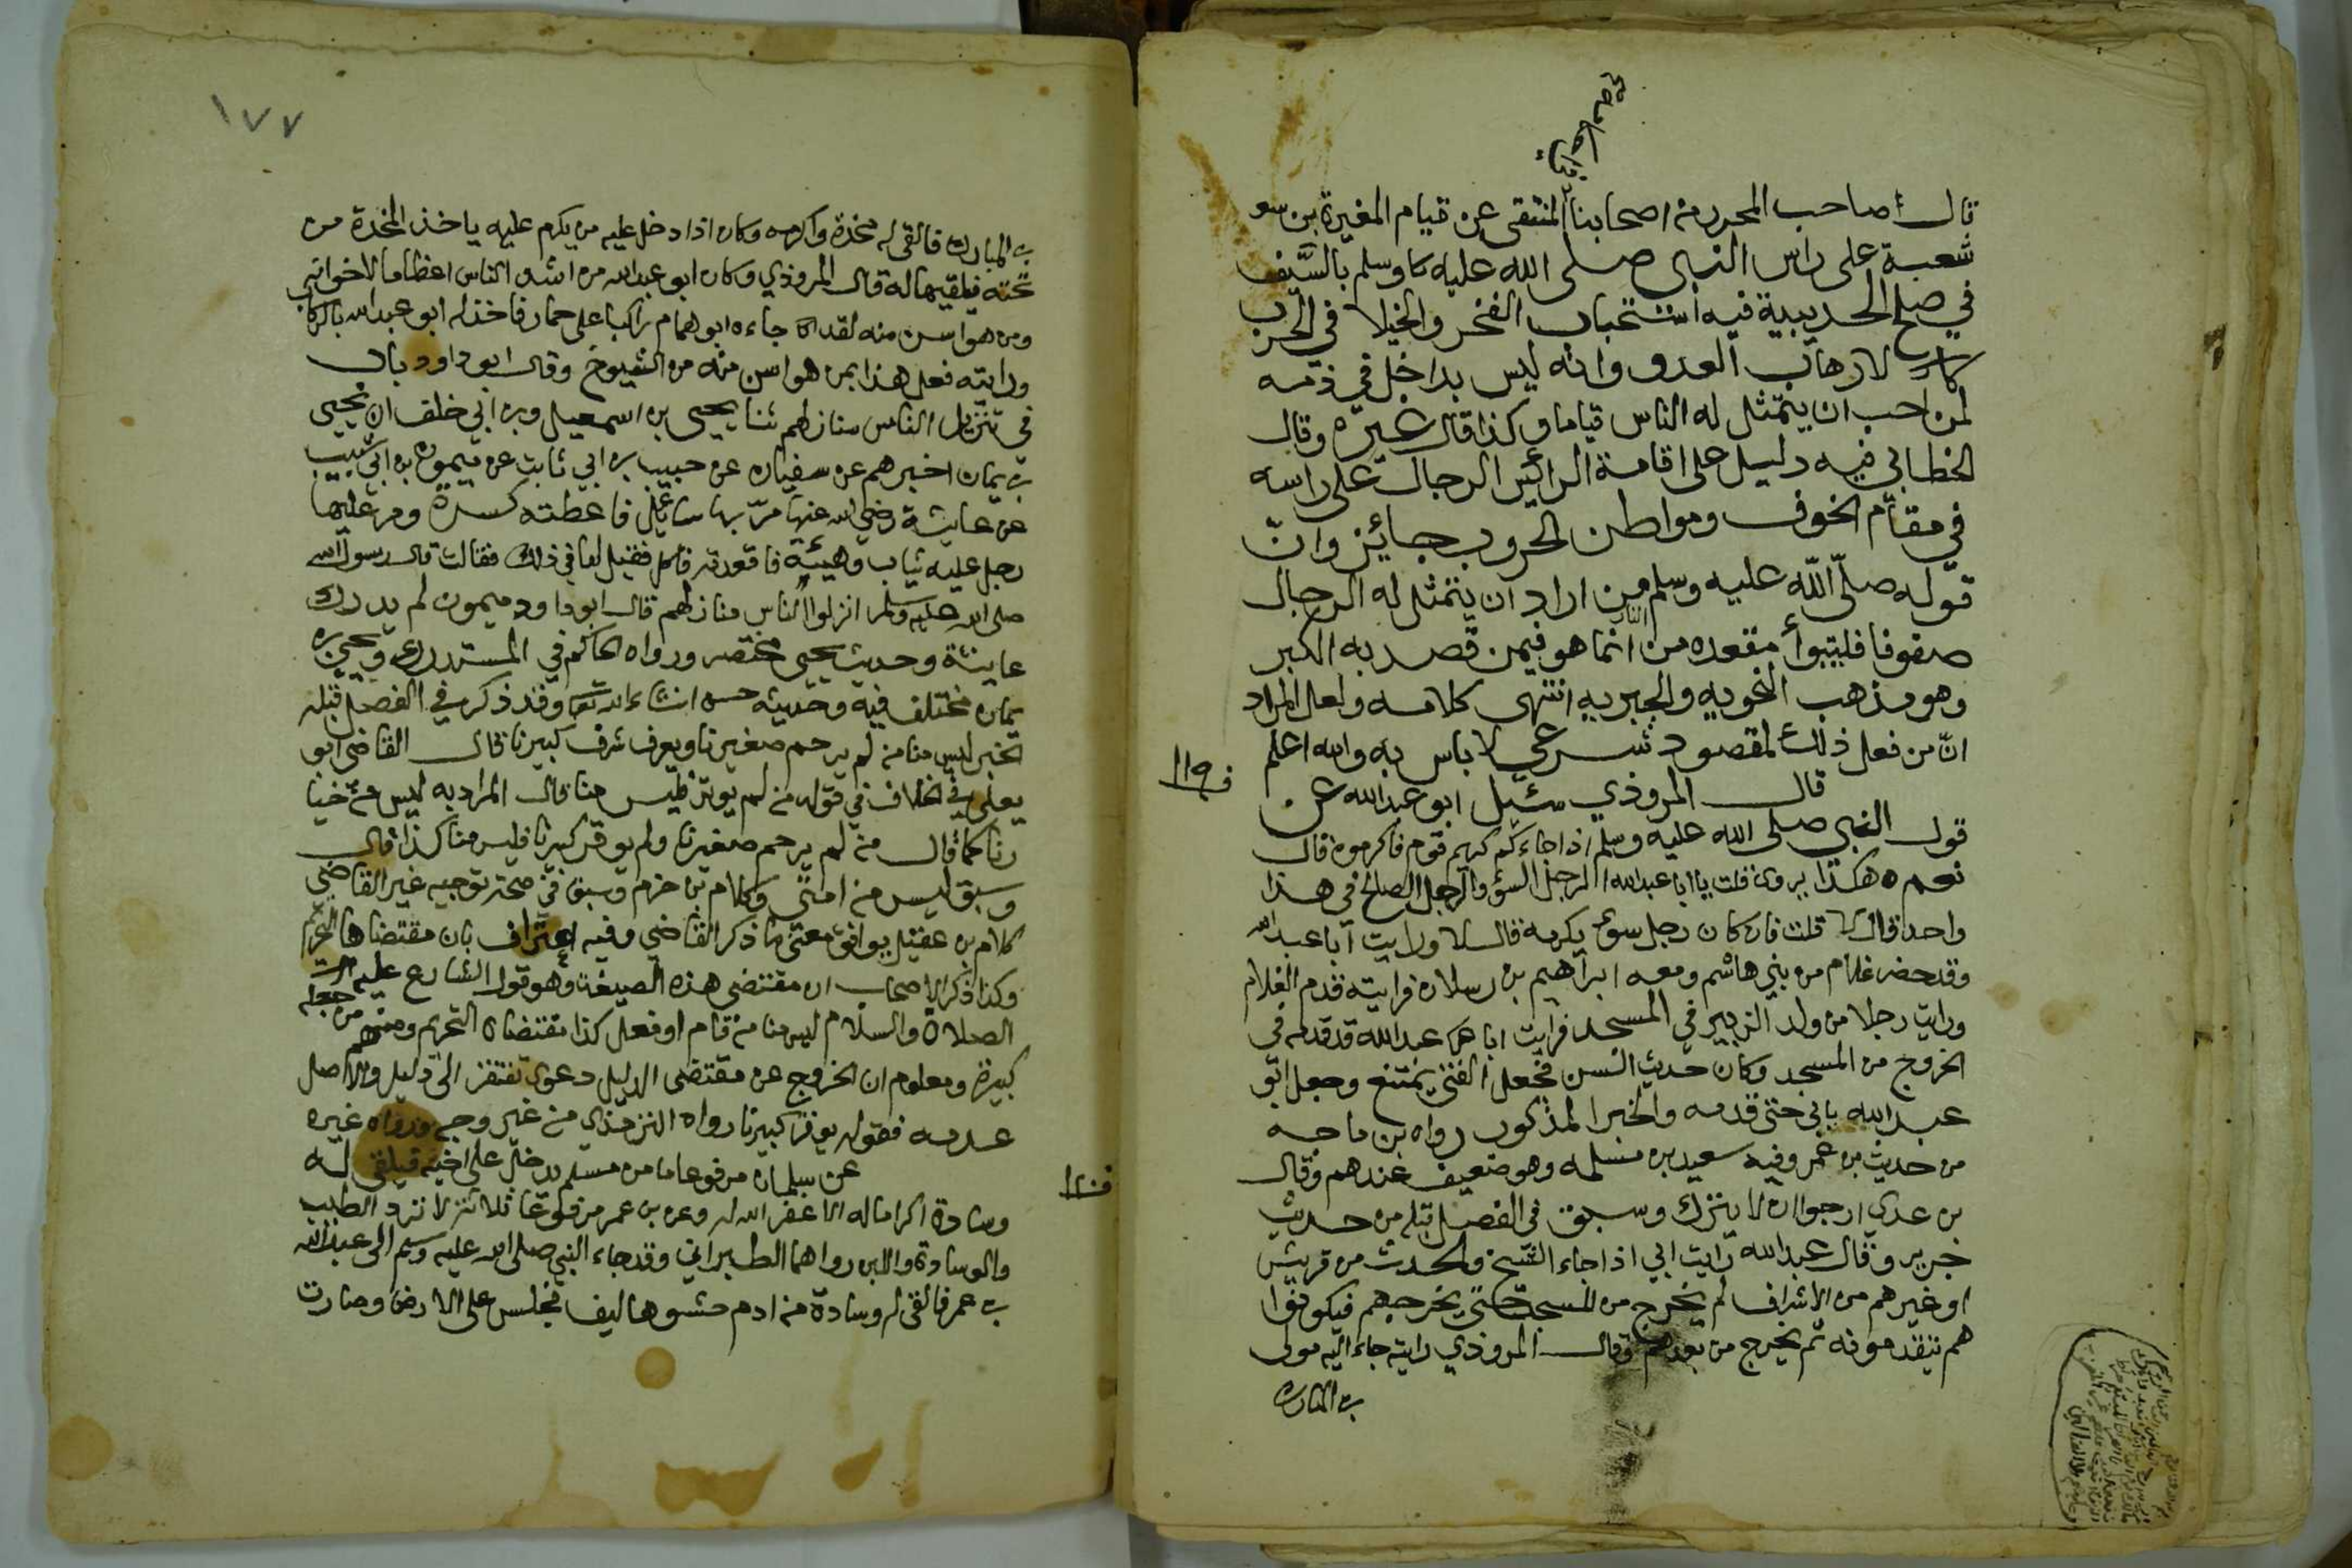 قال صاحب المحرر من اصحابنا المنتقى عن قيام المغيرة بن
شعبة على راس النبي صلى الله عليه وسلم بالسَّيف
في صلح الحديبية فيه استحباب الفخر والخيلا في الحرب
لارهاب العدو وانه ليس بداخل في ذمه
لمن احب ان يتمثل له الناس قياما وكذا قال غيره وقال
الخطابي فيه دليل على اقامة الرائيس الرجال على راسه
في مقام الخوف ومواطن الحروب جائيز وانّ
قوله صلّى اللّه عليه وسلم من اراد ان يتمثل له الرجال
صفوفا فليتبوأ مقعده من النار انما هو فيمن قصد به الكبر
وهو مذهب النخويه والجبريه انتهى كلامه ولعل المراد
انّ من فعل ذلك لمقصود شرعي لا باس به والله اعلم
قال المروذي سئيل ابو عبد الله عن
قول النبي صلى الله عليه وسلم اذا جاءكم كريم قوم فاكرموه قال
نعم هكذا يروى قلت يا ابا عبد الله الرجل السؤ والرجل الصالح في هذا
واحد قال لا قلت فان كان رجل سوء يكرمه قال لا ورايت ابا عبد الله
وقد حضر غلام من بني هاشم ومعه ابراهيم بن رسلان فرايته قدم الغلام
ورايت رجلا من ولد الزبير في المسجد فرايت ابا عبد الله قد قدمه في
الخروج من المسجد وكان حديث السن فجعل الفتى يمتنع وجعل ابو
عبد الله يابي حتى قدمه والخبر المذكور رواه بن ماجه
من حديث بن عمر وفيه سعيد بن مسلمه وهو ضعيف عندهم وقال
بن عدي ارجوا ان لا يترك وسبق في الفصل قبله من حديث
جرير وقال عبد الله رايت ابي اذا جاء الشيخ والحدث من قريش
او غيرهم من الاشراف لم يخرج من المسجد حتى يخرجهم فيكونوا
هم يتقدمونه ثم يخرج من بعدهم وقال المروذي رايته جاء اليه مولى
بن المبارك
١٧٧
بن المبارك فالقى له مخدة واكرمه وكان اذا دخل عليه من يكرم عليه ياخذ المخدة من
تحته فيلقيها له قال المروذي وكان ابو عبد الله من اشد الناس اعظاما لاخوانه
ومن هو اسن منه لقد جاءه ابو همام راكبا على حمار فاخذ له ابو عبد الله بالركاب
ورايته فعل هذا بمن هو اسن منه من الشيوخ وقال ابو داود باب
في تنزيل الناس منازلهم ثنا يحيى بن اسمعيل وبن ابي خلف ان يحيى
بن يمان اخبرهم عن سفيان عن حبيب بن ابي ثابت عن ميمون بن ابي شبيب
عن عايشة رضي الله عنها مرّ بها سايل فاعطته كسرة ومر عليها
رجل عليه ثياب وهيئة فاقعدته فاكل فقيل لها في ذلك فقالت قال رسول الله
صلى الله عليه وسلم انزلوا الناس منازلهم قال ابو داود ميمون لم يدرك
عايشة وحديث يحيى مختصر ورواه الحاكم في المستدرك ويحيى بن
يمان مختلف فيه وحديثه حسن ان شاء الله تعا وقد ذكر في الفصل قبله
الخبر ليس منا من لم يرحم صغيرنا ويعرف شرف كبيرنا قال القاضي ابو
يعلى في الخلاف في قوله من لم يوتر فليس منا قال المراد به ليس من خيا
رنا كما قال من لم يرحم صغيرنا ولم يوقر كبيرنا فليس منا كذا قال
وسبق ليس من امتي وكلام بن حزم وسبق في صحة توجيه غير القاضي
كلام بن عقيل يوافق معنى ما ذكر القاضي وفيه اعتراف بان مقتضاها التحريم
وكذا ذكر الاصحاب ان مقتضى هذه الصيغة وهو قول الشارع عليه
الصلاة والسلام ليس منا من قام او فعل كذا مقتضاه التحريم ومنهم من جعله
كبيرة ومعلوم ان الخروج عن مقتضى الدليل دعوى تفتقر الى دليل والاصل
عدمه فقوله يوقر كبيرنا رواه الترمذي من غير وجه ورواه غيره
عن سلمان مرفوعا ما من مسلم يدخل على اخيه فيلقى له
وسادة اكراما له الا غفر الله له وعن بن عمر مرفوعا ثلاثة لا ترد الطيب
والوسادة واللبن رواهما الطبراني وقد جاء النبي صلى الله عليه وسلم الى عبد الله
بن عمر فالقى له وسادة من ادم حشوها ليف فجلس على الارض وصارت